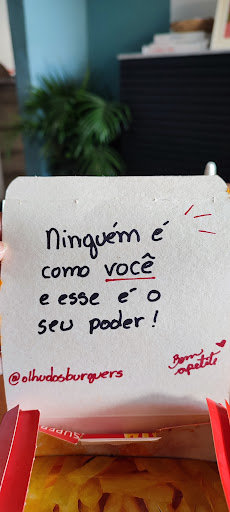 Ninguém é
como você
e esse é o
seu poder!
Bom
apetite
@olhudosburguers
SUPER